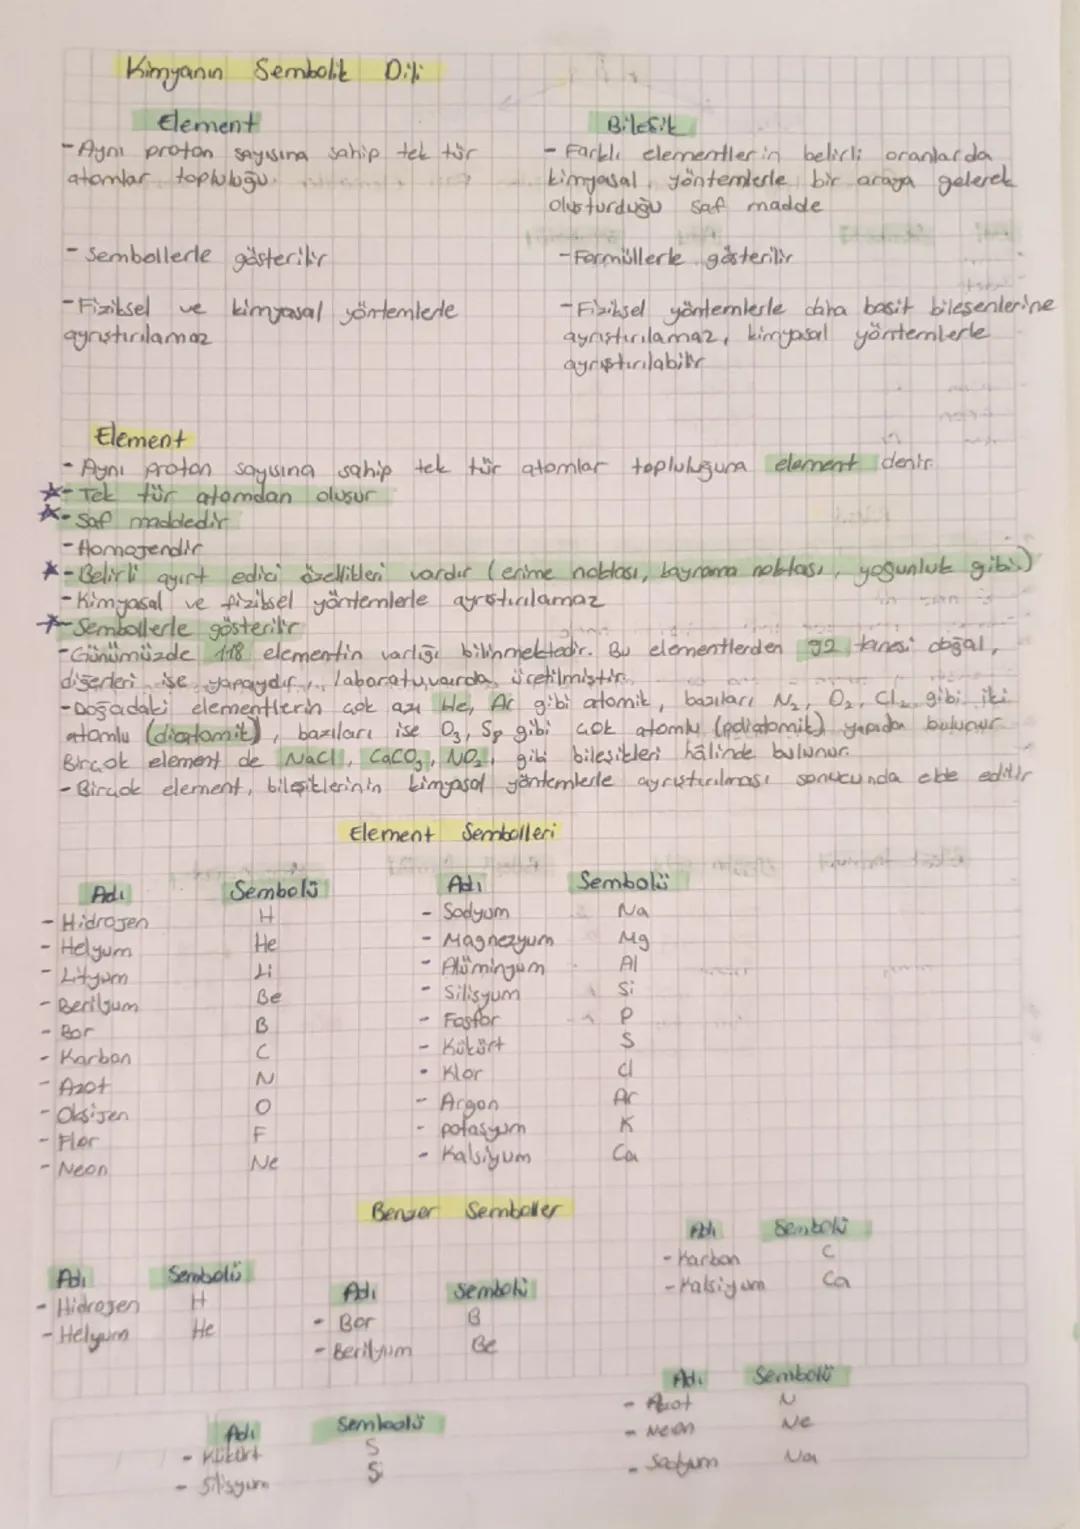 Kimyanın Sembolik Dili
Element
- Aynı proton sayısına sahip tek tür
atomlar topluluğu.
- Sembollerle gösterilir
- Fiziksel ve kimyasal yöntemlerle
ayrıştırılamaz
Bileşik
- Farklı elementlerin belirli oranlarda
kimyasal yöntemlerle bir araya gelerek
oluşturduğu saf madde
- Formüllerle gösterilir
- Fiziksel yöntemlerle daha basit bileşenlerine
ayrıştırılamaz, kimyasal yöntemlerle
ayrıştırılabilir
Element
- Aynı proton sayısına sahip tek tür atomlar topluluğuna element denir.
- Tek tür atomdan oluşur
- Saf maddedir
- Homojendir
- Belirli ayırt edici özellikleri vardır (erime noktası, kaynama noktası, yoğunluk gibi.)
- Kimyasal ve fiziksel yöntemlerle ayrıştırılamaz
- Sembollerle gösterilir
- Günümüzde 118 elementin varlığı bilinmektedir. Bu elementlerden 92 tanesi doğal,
diğerleri ise yapaydır, laboratuvarda üretilmiştir.
- Doğadaki elementlerin çok azı He, Ar gibi atomik, bazıları N₂, O₂, Cl₂ gibi iki
atomlu (diatomik), bazıları ise O₃, S₈ gibi çok atomlu (poliatomik) yapıda bulunur.
Birçok element de NaCl, CaCO₃, NO₂, gibi bileşikleri hâlinde bulunur.
- Birçok element, bileşiklerinin kimyasal yöntemlerle ayrıştırılması sonucunda elde edilir
Element Sembolleri
Adı Sembolü
- Hidrojen H
- Helyum He
- Lityum Li
- Berilyum Be
- Bor B
- Karbon C
- Azot N
- Oksijen O
- Flor F
- Neon Ne
Adı Sembolü
- Sodyum Na
- Magnezyum Mg
- Alüminyum Al
- Silisyum Si
- Fosfor P
- Kükürt S
- Klor Cl
- Argon Ar
- potasyum K
- Kalsiyum Ca
Benzer Semboller
Adı Sembolü
- Hidrojen H
- Helyum He
Adı Sembolü
- Bor B
- Berilyum Be
Adı Sembolü
- Karbon C
- Kalsiyum Ca
Adı Sembolü
- Kükürt S
- Silisyum Si
Adı Sembolü
- Azot N
- Neon Ne
- Sodyum Na